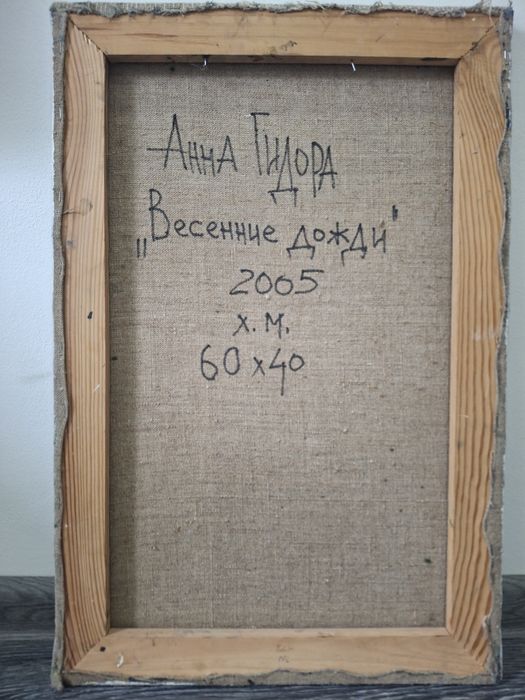 Анна Гидора
„Весенние дожди"
2005
х. м.
60х40